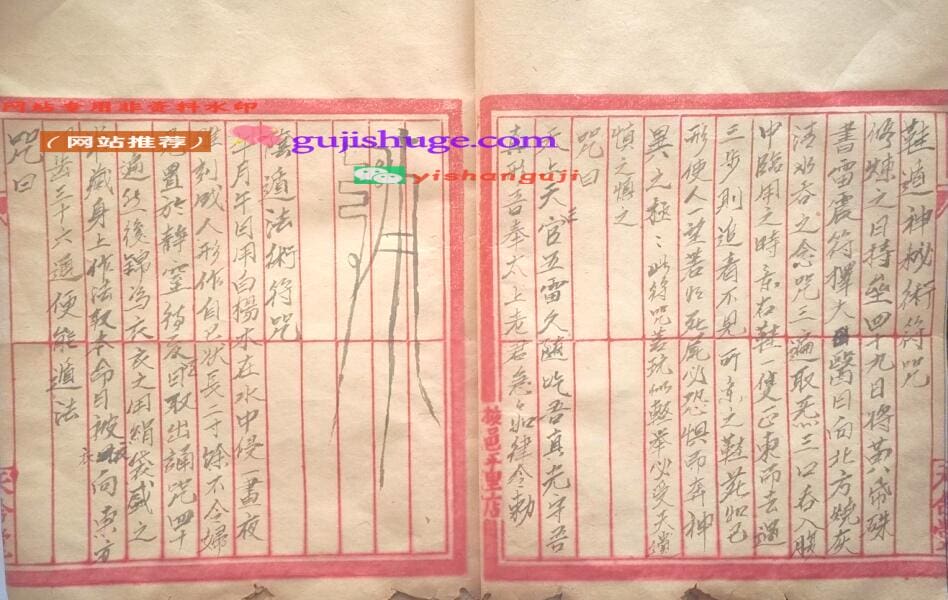 鞋遁神秘術符咒
修煉之日持坐四十九日將黃帋硃
書雷震符擇大醫日向北方燒灰
法水吞之念咒三遍取炁三口吞入腹
中臨用之時弃右鞋一隻正東而去過
三步則追者不見所弃之鞋若如己
形使人一望若如死屍必恐惧而奔神
異之極〻此符咒若玩似輕舉必受天譴
慎之慎之
咒曰
天官五雷久隨吃吾真光守吾
真形吾奉太上老君急如律令勅
按邑平里店
遁法術符咒
月午日用白楊木在水中侵一晝夜
刻成人形作自己狀長二寸餘不令婦
置於静室待亥日取出誦咒四十
遍然後錦為衣亥又用絹袋盛之
藏身上作法取本命日被衣向東方
齒三十六通便能遁法
咒曰
网站专用非资料水印
（网站推荐）
gujishuge.com
yishanguji